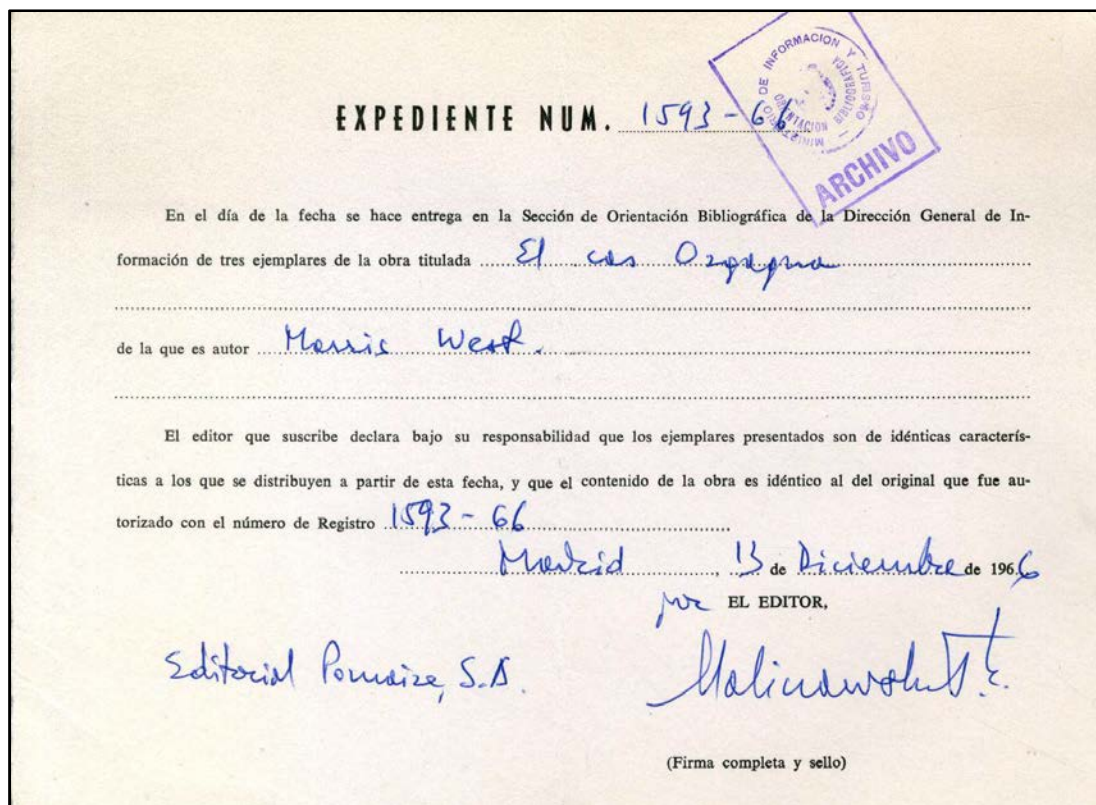 MINISTERIO DE INFORMACION Y TURISMO
ORIENTACION BIBLIOGRAFICA
ARCHIVO
EXPEDIENTE NUM. 1593-66
En el día de la fecha se hace entrega en la Sección de Orientación Bibliográfica de la Dirección General de In-
formación de tres ejemplares de la obra titulada El cas Orgagna
de la que es autor Morris West.
El editor que suscribe declara bajo su responsabilidad que los ejemplares presentados son de idénticas caracterís-
ticas a los que se distribuyen a partir de esta fecha, y que el contenido de la obra es idéntico al del original que fue au-
torizado con el número de Registro 1593-66
Madrid, 13 de Diciembre de 1966
por EL EDITOR,
Editorial Pomaire, S.A.
(Firma completa y sello)